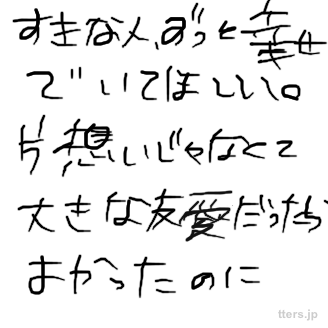 すきな人、ずっと幸せ
でいてほしい。
片想いじゃなくて
大きな友愛だったら
よかったのに
tters.jp